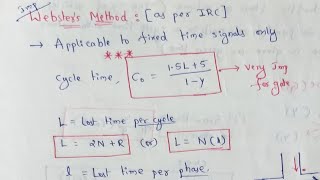 Imp
Webster's Method : [as per IRC]
→ Applicable to fixed time signals only
***
cycle time, C₀ = 1.5L+5 / 1-y → very Imp
for gate
L = Lost time per cycle
L = 2N+R (or) L = N(l)
l = Lost time per phase.